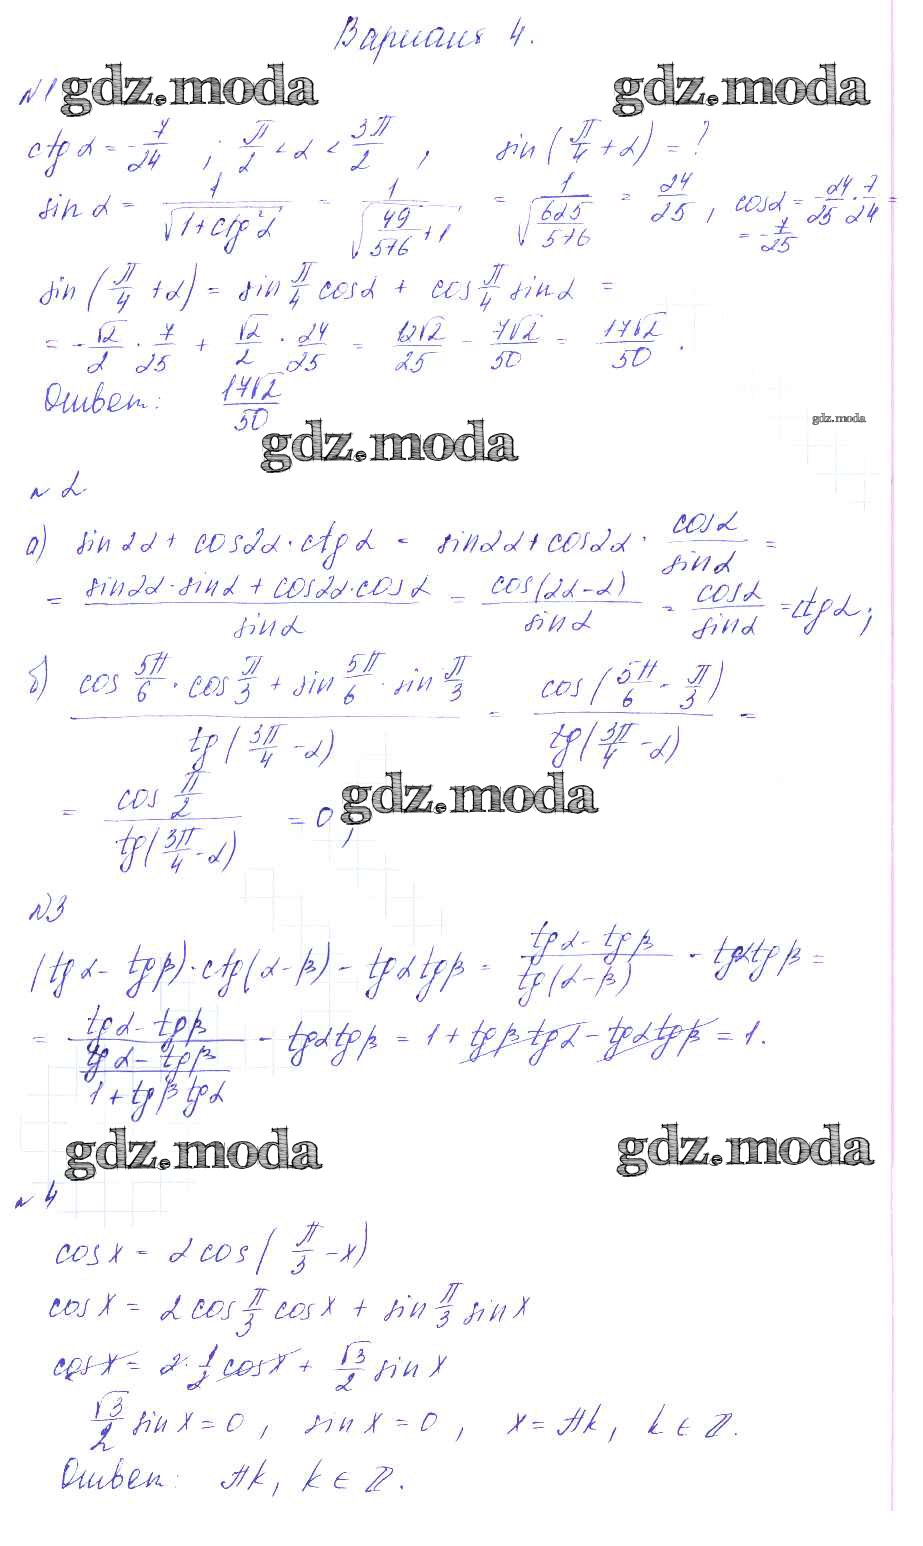 Вариант 4.
№1
gdz.moda gdz.moda
ctg α = -7/24 ; π/2 < α < 3π/2 , sin(π/4 + α) = ?
sin α = 1/√(1+ctg²α) = 1/√(49/576 + 1) = 1/√(625/576) = 24/25 , cosα = -24/25 · 7/24 =
= -7/25
sin(π/4 + α) = sin π/4 cosα + cos π/4 sinα =
= -√2/2 · 7/25 + √2/2 · 24/25 = 12√2/25 - 7√2/50 = 17√2/50 .
Ответ: 17√2/50
gdz.moda
gdz.moda
№2
а) sin2α + cos2α·ctgα = sin2α + cos2α · cosα/sinα =
= (sin2α·sinα + cos2α·cosα)/sinα = cos(2α-α)/sinα = cosα/sinα = ctgα;
б) (cos 5π/6 · cos π/3 + sin 5π/6 · sin π/3)/tg(3π/4 - α) = cos(5π/6 - π/3)/tg(3π/4 - α) =
= cos π/2 / tg(3π/4 - α) = 0,
gdz.moda
№3
(tgα - tgβ)·ctg(α-β) - tgαtgβ = (tgα - tgβ)/tg(α-β) - tgαtgβ =
= (tgα - tgβ)/((tgα - tgβ)/(1 + tgβtgα)) - tgαtgβ = 1 + tgβtgα - tgαtgβ = 1.
gdz.moda gdz.moda
№4
cosx = 2cos(π/3 - x)
cosx = 2cos π/3 cosx + sin π/3 sinx
cosx = 2·1/2 cosx + √3/2 sinx
√3/2 sinx = 0, sinx = 0, x = πk, k ∈ Z.
Ответ: πk, k ∈ Z.